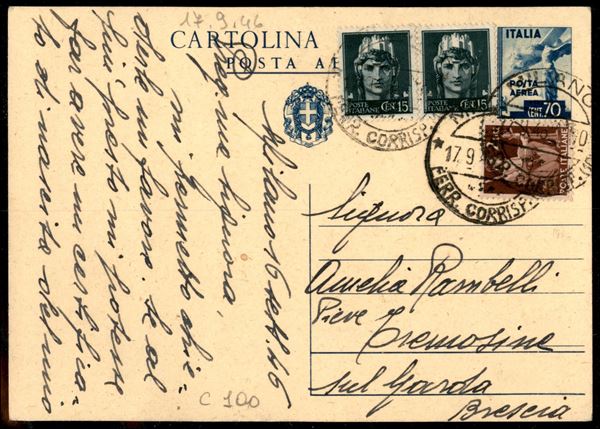 17.9.46
CARTOLINA
POSTA AE
ITALIA
POSTA
AEREA
CENT. 70
POSTE
ITALIANE
CENT. 15
POSTE
ITALIANE
CENT. 15
POSTE ITALIANE
MILANO
17.9
FERR. CORRISP.
Milano 16 sett. 46
signora,
mi permetto chie=
derle un favore. Se al
più presto mi potesse
far avere un certifica=
to di nascita del mio
Signora
Amelia Rambelli
Pieve Tremosine
sul Garda
Brescia
C 100